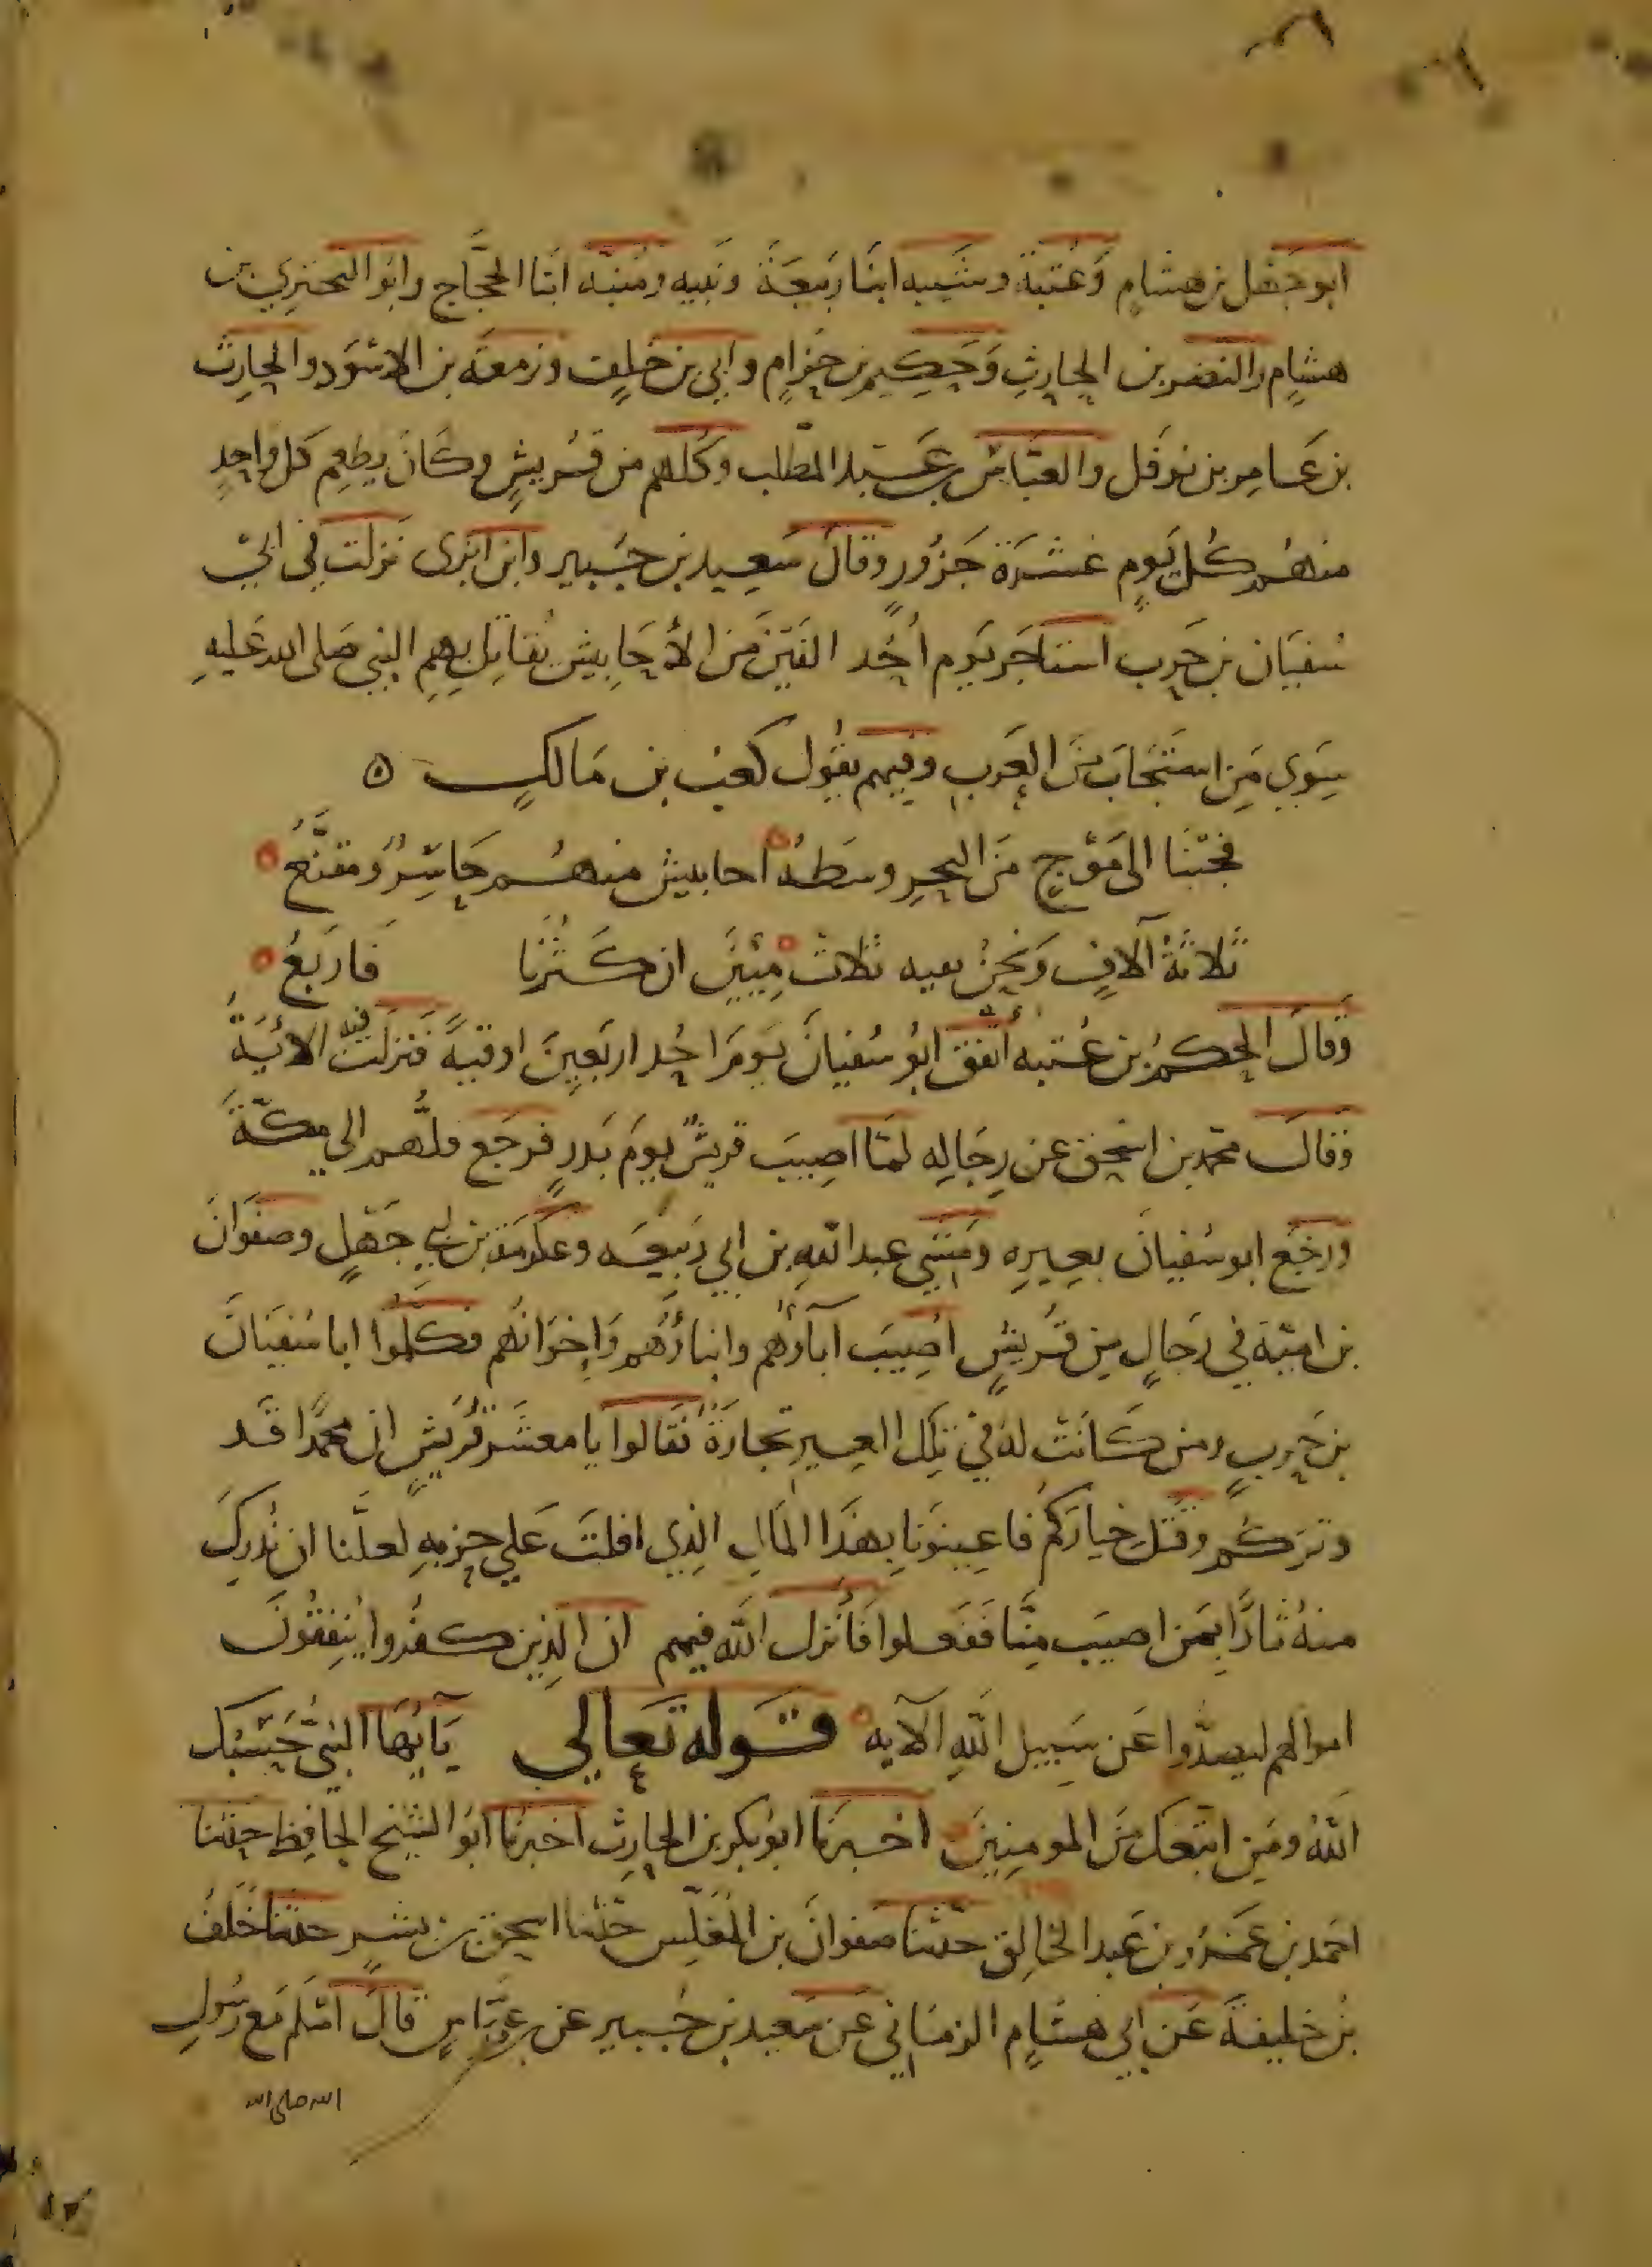 ابو جَهْل بن هشامٍ وَعُتبَة وشيبه ابنَا رَبيعَةَ ونبيه ومُنبّه ابَنا الحجَّاج وابوا البحتري بن
هشامٍ والنضر بن الحارثِ وَحَكيم بن حِزامٍ وابي بن خلفٍ وزمعَه بن الاسْوَد والحارث
بن عَامِر بن نوفَل والعبّاسُ بن عَبد المطّلب وكلهم من قُريشٍ وكَانَ يطعِم كل واحدٍ
منهُم كُل يَومٍ عَشرَة جَزُورٍ وقال سَعِيد بن جُبَير وابن ابزى نزلت في ابي
سُفيَان بن حَرب استاجَر يَوم اُحُد الفَيْن مَن الأحَابِيش يُقاتِل بِهِم النبي صَلى الله عَليهِ
سِوي مَن استجَابَ منَ العَربِ وفيهم يقُول كعبُ بن مَالكٍ ٥
فجئنَا الى مَوْجٍ مَن البحرِ وسطهُ احابيش منهُم حَاسِرٌ ومقنَّعُ
ثَلاثةُ آلافٍ وَنحنُ بقيه ثلاثُ مِئِينَ ان كَثُرْنَا فَاربَعُ
وَقالَ الحكمُ بن عُتبه اَنفق ابُو سُفيانَ يَومَ احُد اربَعِينَ اوقيةً فنزلَت فيه الايَةُ
وَقال محمّد بن اسحٰق عن رِجَالِه لمّا اصِيبَ قريشٌ يومَ بَدرٍ فرجَع فلُّهم الى مكّةَ
ورجَع ابو سُفيانَ بعِيرِه ومَشي عبد اللهِ بن ابي رَبيعَه وعكرمَة بن ابي جَهْلٍ وصفوَانَ
بن اميّة في رَجالٍ مِن قُريشٍ اُصِيبَ آباؤهم وابناؤُهم وَاِخوَانُهم فكلّموا ابا سُفيَانَ
بن حَربٍ ومن كَانَتْ لهُ في تِلك العِير تجارَةٌ فقَالوا يا معشَر قُريشٍ ان محمدًا قَد
وتركُم وقَتَل خيارَكُم فاعِينوُنا بهَذَا المَالِ الذِي افلتَ عَلي حَربِهِ لعلَّنا ان نُدركَ
منهُ ثارًا بِمَن اصيبَ مِنَّا فَفَعلوا فَأَنزل اللّه فيهم ان الذِين كفرُوا يُنفِقُونَ
اموالهم ليصدُّوا عَن سَبيل اللّهِ الآيه قَوله تعَالي يَآيُهَا النبيُّ حَسْبُك
اللهُ ومَن اتبَعك منَ المومِنِينَ اخبَرنَا ابو بكر بن الحارِث اخبرنَا ابوا الشيخ الحافِظ حدثنا
احَمد بن عَمرُو بن عَبد الخالِق حدّثنا صَفوانَ بن المُغَلِّس حدّثنا اسحٰق بن بشرٍ حدثنا خَلفُ
بنُ خليفةَ عَن ابي هشامٍ الزمَاني عَن سَعيد بن جُبير عن بن عبَّاسٍ قالَ اسْلَم مَع رسُولِ
الله صلى الله